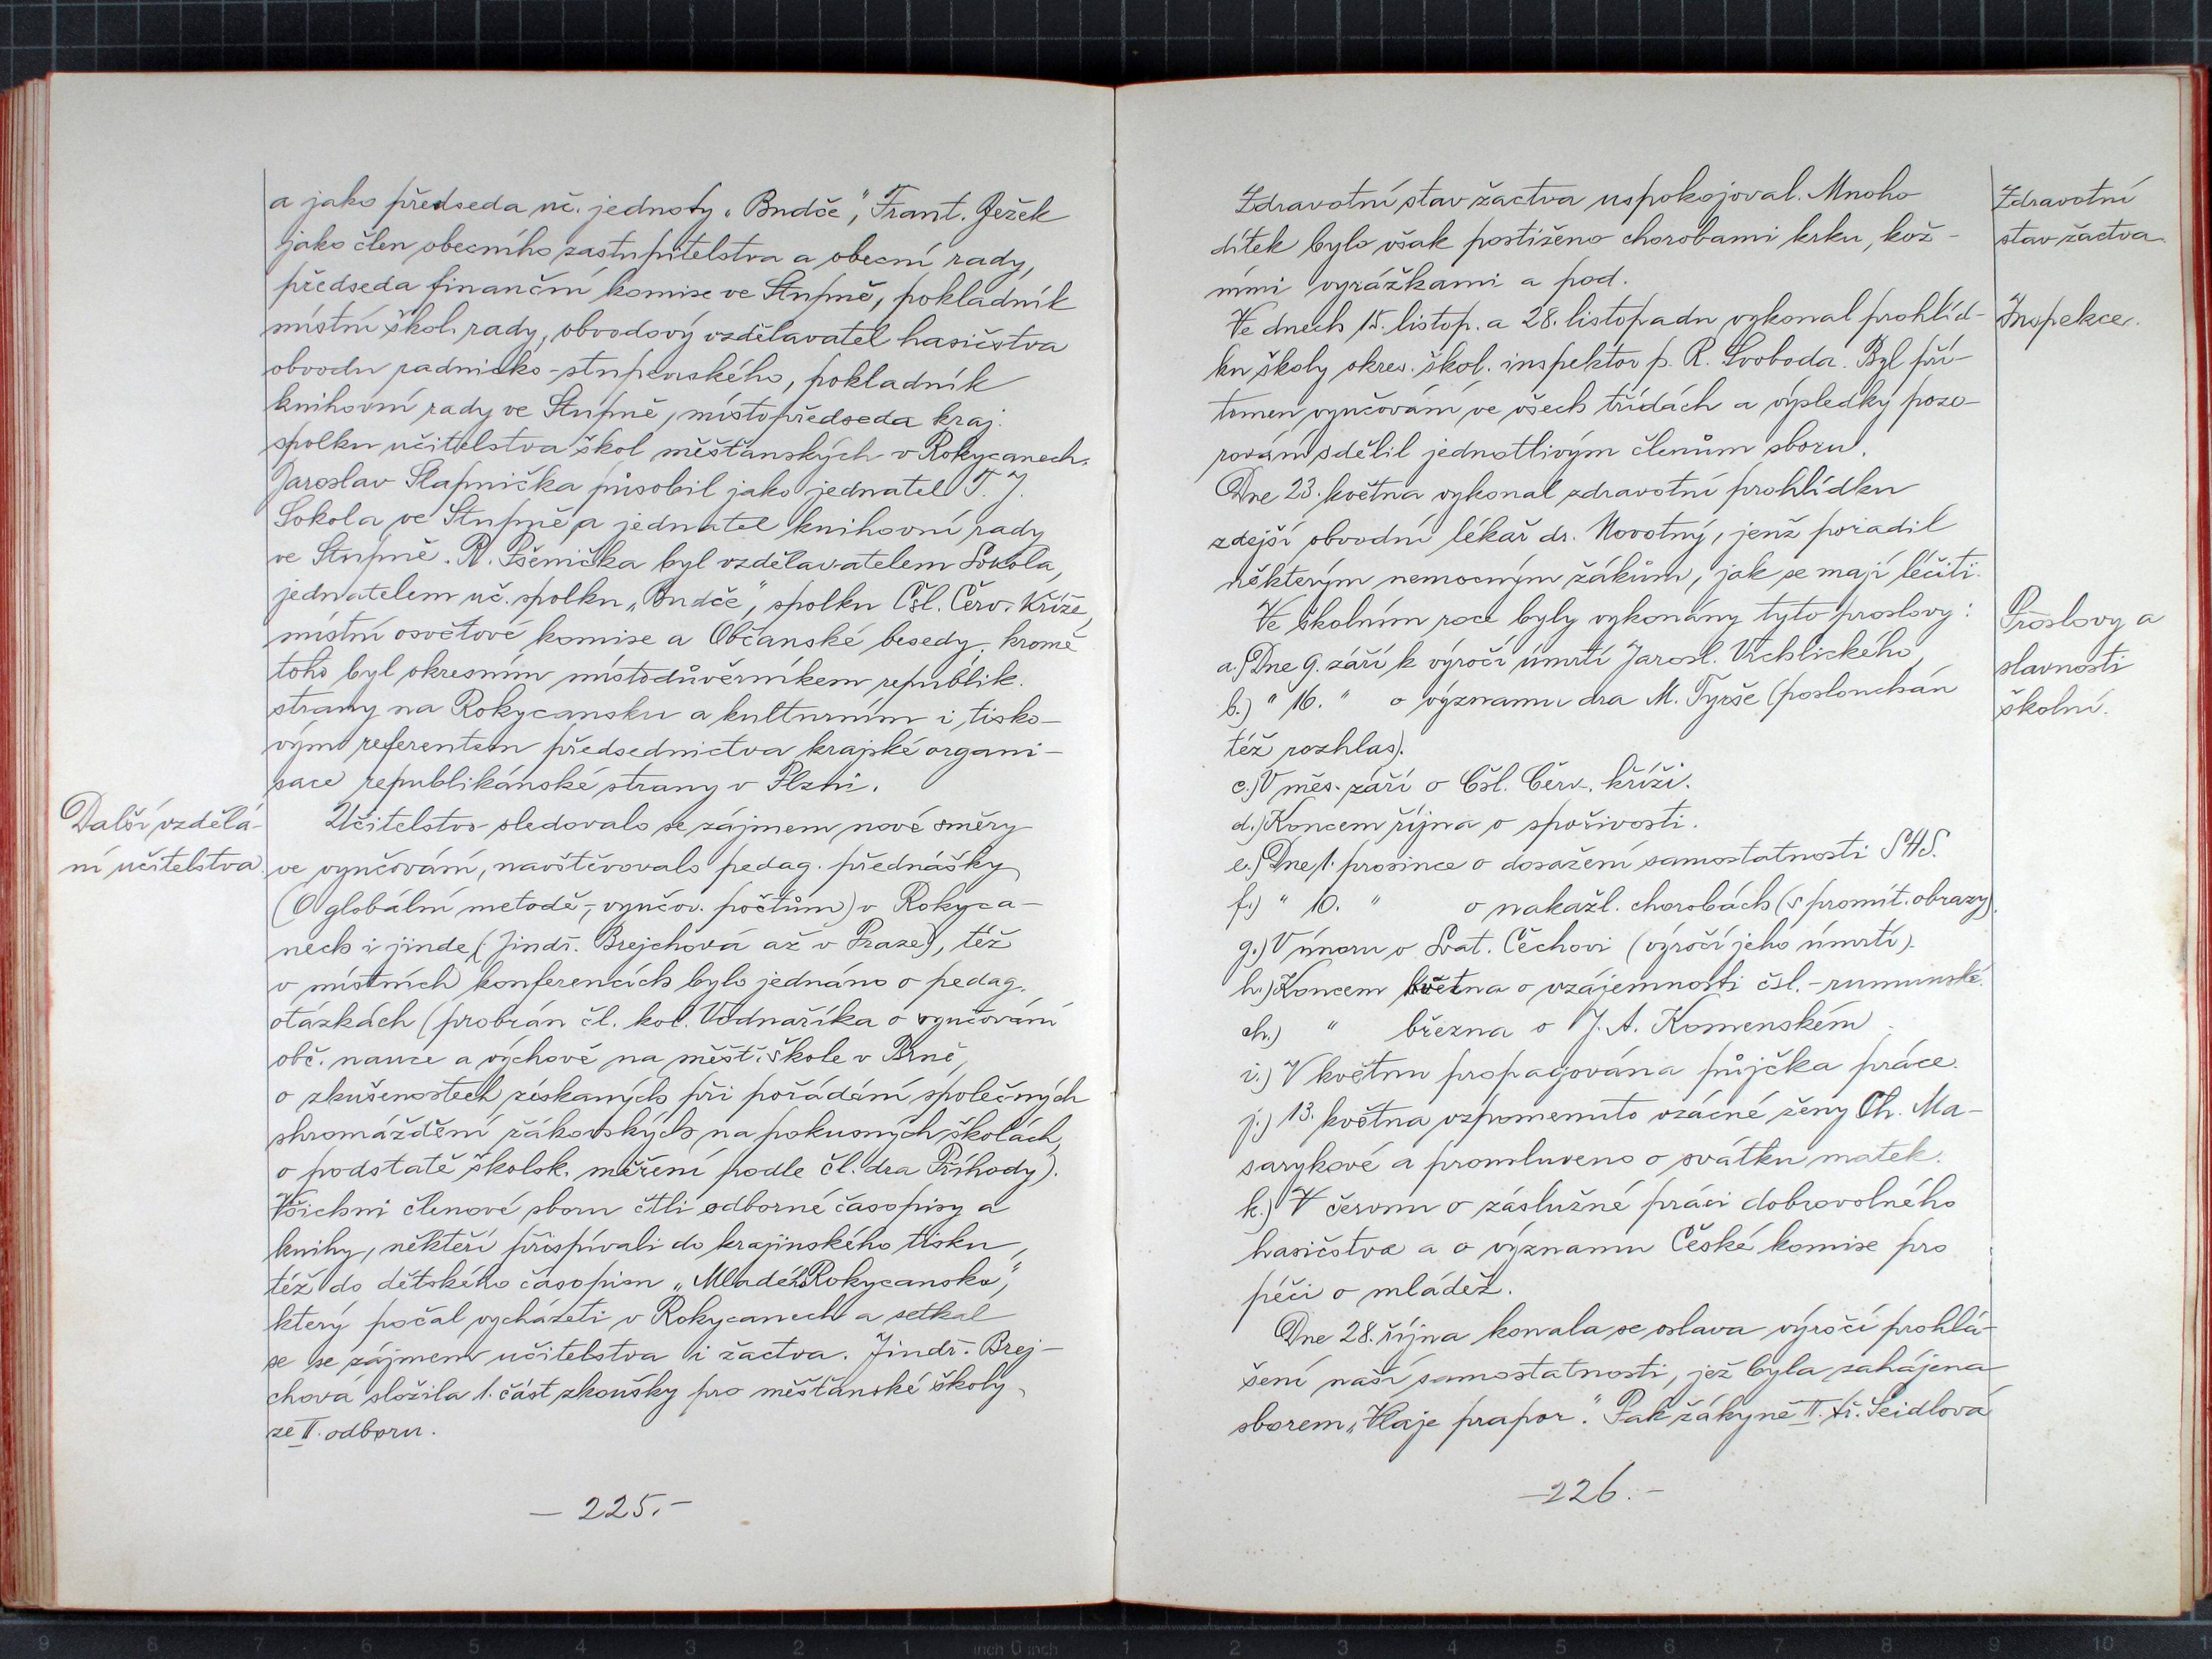 a jako předseda uč. jednoty „Budče“, Frant. Ježek
jako člen obecního zastupitelstva a obecní rady,
předseda finanční komise ve Stupně, pokladník
místní škol. rady, obvodový vzdělavatel hasičstva
obvodu radnicko-stupenského, pokladník
knihovní rady ve Stupně, místopředseda kraj.
spolku učitelstva škol měšťanských v Rokycanech.
Jaroslav Slapnička působil jako jednatel T. J.
Sokola ve Stupně a jednatel knihovní rady
ve Stupně. R. Pšenička byl vzdělavatelem Sokola,
jednatelem uč. spolku „Budče“, spolku Čsl. Červ. Kříže,
místní osvětové komise a Občanské besedy, kromě
toho byl okresním místodůvěrníkem republik.
strany na Rokycansku a kulturním i tisko-
vým referentem předsednictva krajské organi-
sace republikánské strany v Plzni.
Další vzdělá-
ní učitelstva.
Učitelstvo sledovalo se zájmem nové směry
ve vyučování, navštěvovalo pedag. přednášky
(O globální metodě, vyučov. počtům) v Rokyca-
nech i jinde (Jindř. Brejchová až v Praze), též
v místních konferencích bylo jednáno o pedag.
otázkách (probrán čl. kol. Vodnaříka o vyučování
obč. nauce a výchově na měšť. škole v Brně,
o zkušenostech získaných při pořádání společných
shromáždění žákovských na pokusných školách,
o podstatě školsk. měření podle čl. dra Příhody).
Všichni členové sboru čtli odborné časopisy a
knihy, někteří přispívali do krajinského tisku,
též do dětského časopisu „Mladého Rokycanska“,
který počal vycházeti v Rokycanech a setkal
se se zájmem učitelstva i žactva. Jindř. Brej-
chová složila 1. část zkoušky pro měšťanské školy
ze II. odboru.
— 225. —
Zdravotní stav žactva uspokojoval. Mnoho
dítek bylo však postiženo chorobami krku, kož-
ními vyrážkami a pod.
Zdravotní
stav žactva.
Ve dnech 15. listop. a 28. listopadu vykonal prohlíd-
ku školy okres. škol. inspektor p. R. Svoboda. Byl pří-
tomen vyučování ve všech třídách a výsledky pozo-
rování sdělil jednotlivým členům sboru.
Inspekce.
Dne 23. května vykonal zdravotní prohlídku
zdejší obvodní lékař dr. Novotný, jenž poradil
některým nemocným žákům, jak se mají léčiti.
Ve školním roce byly vykonány tyto proslovy:
Proslovy a
slavnosti
školní.
a.) Dne 9. září k výročí úmrtí Jarosl. Vrchlického,
b.) " 16. " o významu dra M. Tyrše (poslouchán
též rozhlas).
c.) V měs. září o Čsl. Červ. kříži.
d.) Koncem října o spořivosti.
e.) Dne 1. prosince o dosažení samostatnosti SHS.
f.) " 10. " o nakažl. chorobách (s promít. obrazy).
g.) V únoru o Svat. Čechovi (výročí jeho úmrtí).
h.) Koncem května o vzájemnosti čsl.-rumunské.
ch.) " března o J. A. Komenském.
i.) V květnu propagována půjčka práce.
j.) 13. května vzpomenuto vzácné ženy Ch. Ma-
sarykové a promluveno o svátku matek.
k.) V červnu o záslužné práci dobrovolného
hasičstva a o významu České komise pro
péči o mládež.
Dne 28. října konala se oslava výročí prohlá-
šení naší samostatnosti, jež byla zahájena
sborem „Vlaje prapor“. Pak žákyně II. tř. Šeidlová
—226.—